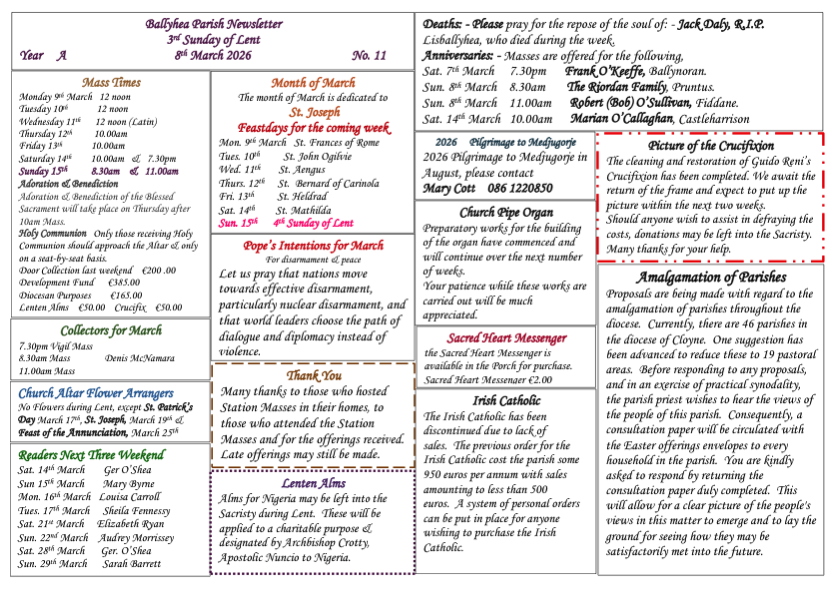 Ballyhea Parish Newsletter
3rd Sunday of Lent
Year A 8th March 2026 No. 11
Mass Times
Monday 9th March 12 noon
Tuesday 10th 12 noon
Wednesday 11th 12 noon (Latin)
Thursday 12th 10.00am
Friday 13th 10.00am
Saturday 14th 10.00am & 7.30pm
Sunday 15th 8.30am & 11.00am
Adoration & Benediction
Adoration & Benediction of the Blessed
Sacrament will take place on Thursday after
10am Mass.
Holy Communion Only those receiving Holy
Communion should approach the Altar & only
on a seat-by-seat basis.
Door Collection last weekend €200 .00
Development Fund €385.00
Diocesan Purposes €165.00
Lenten Alms €50.00 Crucifix €50.00
Collectors for March
7.30pm Vigil Mass
8.30am Mass Denis McNamara
11.00am Mass
Church Altar Flower Arrangers
No Flowers during Lent, except St. Patrick's
Day March 17th, St. Joseph, March 19th &
Feast of the Annunciation, March 25th
Readers Next Three Weekend
Sat. 14th March Ger O'Shea
Sun 15th March Mary Byrne
Mon. 16th March Louisa Carroll
Tues. 17th March Sheila Fennessy
Sat. 21st March Elizabeth Ryan
Sun. 22nd March Audrey Morrissey
Sat. 28th March Ger. O'Shea
Sun. 29th March Sarah Barrett
Month of March
The month of March is dedicated to
St. Joseph
Feastdays for the coming week
Mon. 9th March St. Frances of Rome
Tues. 10th St. John Ogilvie
Wed. 11th St. Aengus
Thurs. 12th St. Bernard of Carinola
Fri. 13th St. Heldrad
Sat. 14th St. Mathilda
Sun. 15th 4th Sunday of Lent
Pope's Intentions for March
For disarmament & peace
Let us pray that nations move
towards effective disarmament,
particularly nuclear disarmament, and
that world leaders choose the path of
dialogue and diplomacy instead of
violence.
Thank You
Many thanks to those who hosted
Station Masses in their homes, to
those who attended the Station
Masses and for the offerings received.
Late offerings may still be made.
Lenten Alms
Alms for Nigeria may be left into the
Sacristy during Lent. These will be
applied to a charitable purpose &
designated by Archbishop Crotty,
Apostolic Nuncio to Nigeria.
Deaths: - Please pray for the repose of the soul of: - Jack Daly, R.I.P.
Lisballyhea, who died during the week.
Anniversaries: - Masses are offered for the following,
Sat. 7th March 7.30pm Frank O'Keeffe, Ballynoran.
Sun. 8th March 8.30am The Riordan Family, Pruntus.
Sun. 8th March 11.00am Robert (Bob) O'Sullivan, Fiddane.
Sat. 14th March 10.00am Marian O'Callaghan, Castleharrison
2026 Pilgrimage to Medjugorje
2026 Pilgrimage to Medjugorje in
August, please contact
Mary Cott 086 1220850
Church Pipe Organ
Preparatory works for the building
of the organ have commenced and
will continue over the next number
of weeks.
Your patience while these works are
carried out will be much
appreciated.
Sacred Heart Messenger
the Sacred Heart Messenger is
available in the Porch for purchase.
Sacred Heart Messenger €2.00
Irish Catholic
The Irish Catholic has been
discontinued due to lack of
sales. The previous order for the
Irish Catholic cost the parish some
950 euros per annum with sales
amounting to less than 500
euros. A system of personal orders
can be put in place for anyone
wishing to purchase the Irish
Catholic.
Picture of the Crucifixion
The cleaning and restoration of Guido Reni's
Crucifixion has been completed. We await the
return of the frame and expect to put up the
picture within the next two weeks.
Should anyone wish to assist in defraying the
costs, donations may be left into the Sacristy.
Many thanks for your help.
Amalgamation of Parishes
Proposals are being made with regard to the
amalgamation of parishes throughout the
diocese. Currently, there are 46 parishes in
the diocese of Cloyne. One suggestion has
been advanced to reduce these to 19 pastoral
areas. Before responding to any proposals,
and in an exercise of practical synodality,
the parish priest wishes to hear the views of
the people of this parish. Consequently, a
consultation paper will be circulated with
the Easter offerings envelopes to every
household in the parish. You are kindly
asked to respond by returning the
consultation paper duly completed. This
will allow for a clear picture of the people's
views in this matter to emerge and to lay the
ground for seeing how they may be
satisfactorily met into the future.